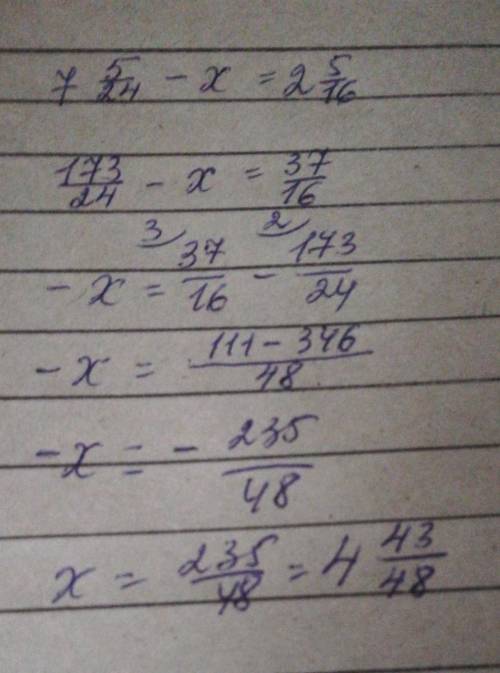 7 5/24 - x = 2 5/16
173/24 - x = 37/16
- x = 3) 37/16 - 2) 173/24
- x = 111 - 346/48
- x = - 235/48
x = 235/48 = 4 43/48